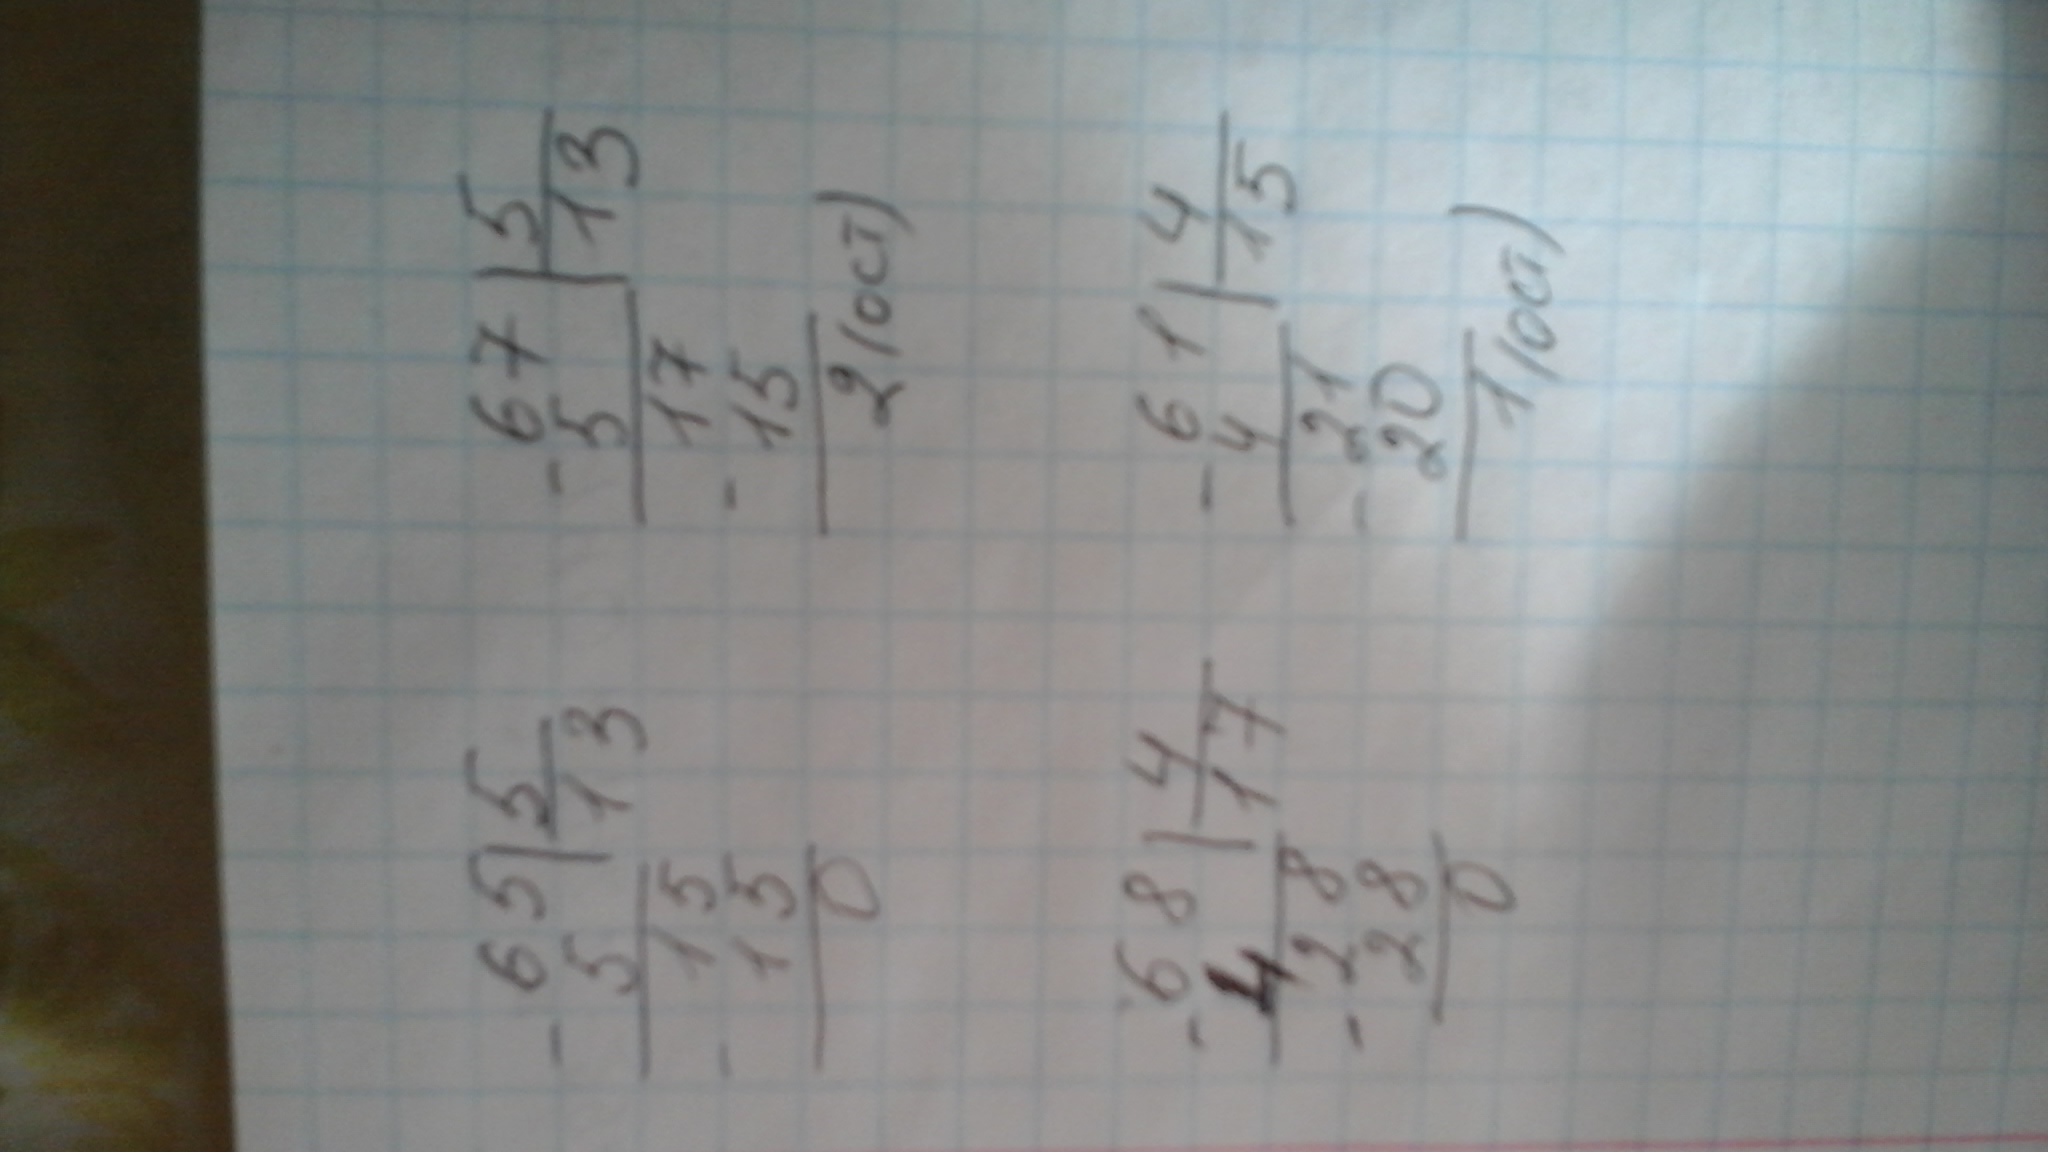 65 | 5
- 5 13
15
- 15
0
67 | 5
- 5 13
17
- 15
2 (ост)
68 | 4
- 4 17
28
- 28
0
61 | 4
- 4 15
21
- 20
1 (ост)